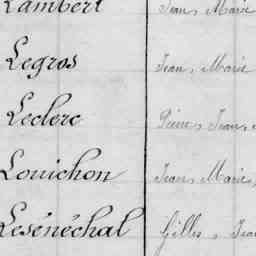 Lambert Jean, Marie
Legros Jean, Marie
Leclerc Pierre, Jean,
Louichon Jean, Marie,
Lesénéchal Gilles, Jean